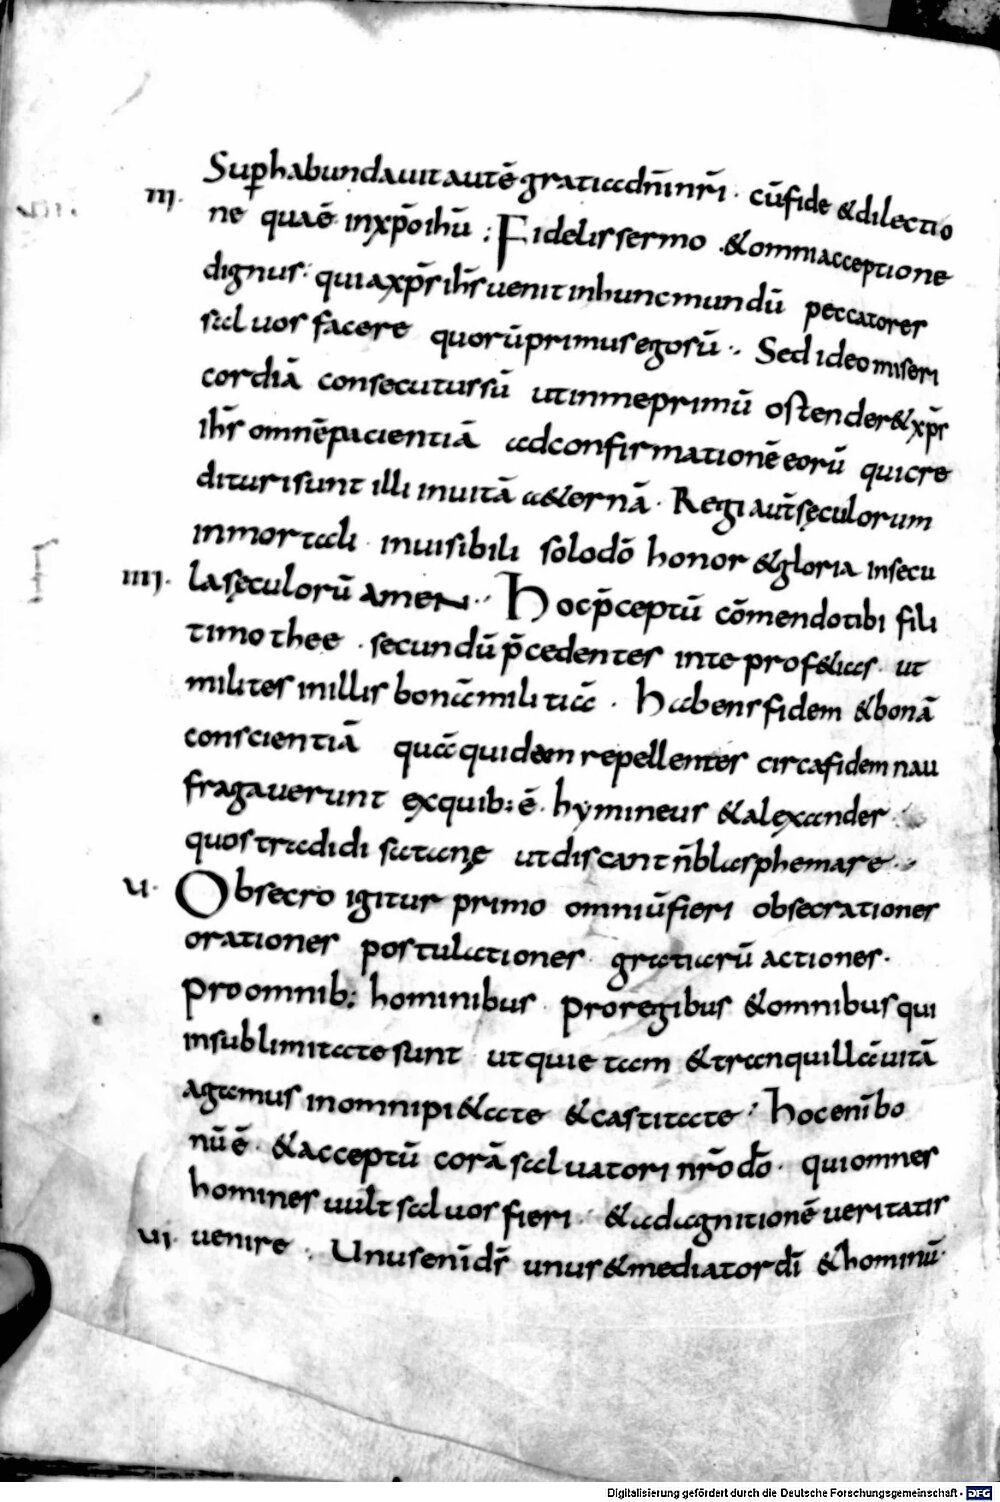 Suꝑhabundauit autē gratia dn̄i nr̄i · cū fide & dilectio
iii. ne quae ē in xp̄o ihū : Fidelis sermo · & omni acceptione
dignus · quia xp̄s ihs̄ uenit in hunc mundū peccatores
saluos facere quorū primus ego sū · Sed ideo miseri
cordiā consecutus sū ut in me primū ostender& xp̄s
ihs̄ omnē pacientiā ad confirmationē eorū qui cre
dituri sunt illi in uitā a&ernā · Regi aut̄ sęculorum
inmortali · inuisibili solo dō honor & gloria in secu
iiii. la sęculorū amen · Hoc p̄ceptū cōmendo tibi fili
timothee · secundū p̄cedentes in te prof&ias · ut
milites in illis bonā militiā · Habens fidem & bonā
conscientiā quā quidem repellentes circa fidem nau
fragauerunt ex quib; ē · hymineus & alexander
quos tradidi satanę ut discant n̄ blasphemare ·
u. Obsecro igitur primo omniū fieri obsecrationes
orationes postulationes gratiarū actiones ·
pro omnib; hominibus · pro regibus & omnibus qui
in sublimitate sunt ut quietam & tranquillā uitā
agamus in omni pi&ate & castitate · Hoc eni̅ bo
nū ē · & acceptū corā saluatori nr̄o dō · qui omnes
homines uult saluos fieri · & ad agnitionē ueritatis
ui. uenire · Unus eni̅ ds̄ unus & mediator dī & hominū ·
Digitalisierung gefördert durch die Deutsche Forschungsgemeinschaft - DFG